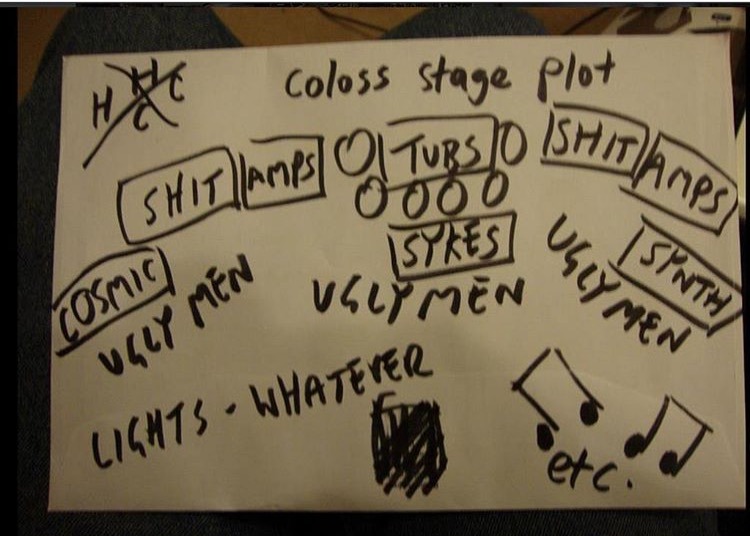 H H C C
coloss stage plot
SHIT AMPS TUBS SHIT AMPS
SYKES
COSMIC SYNTH
UGLY MEN UGLY MEN UGLY MEN
LIGHTS - WHATEVER
etc.